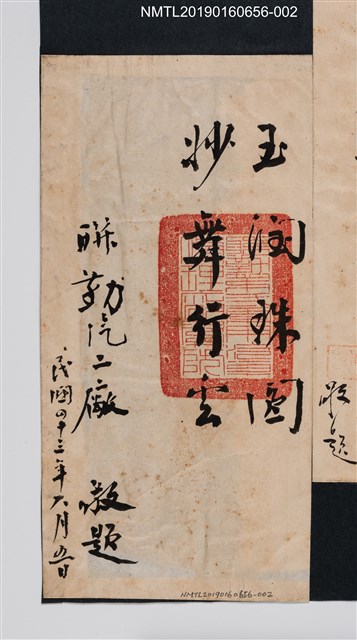 NMTL20190160656-002
玉潤珠圓
妙舞行雲
聯勤汽二廠 敬題
民國四十三年六月五日
敬題
NMTL20190160656-002